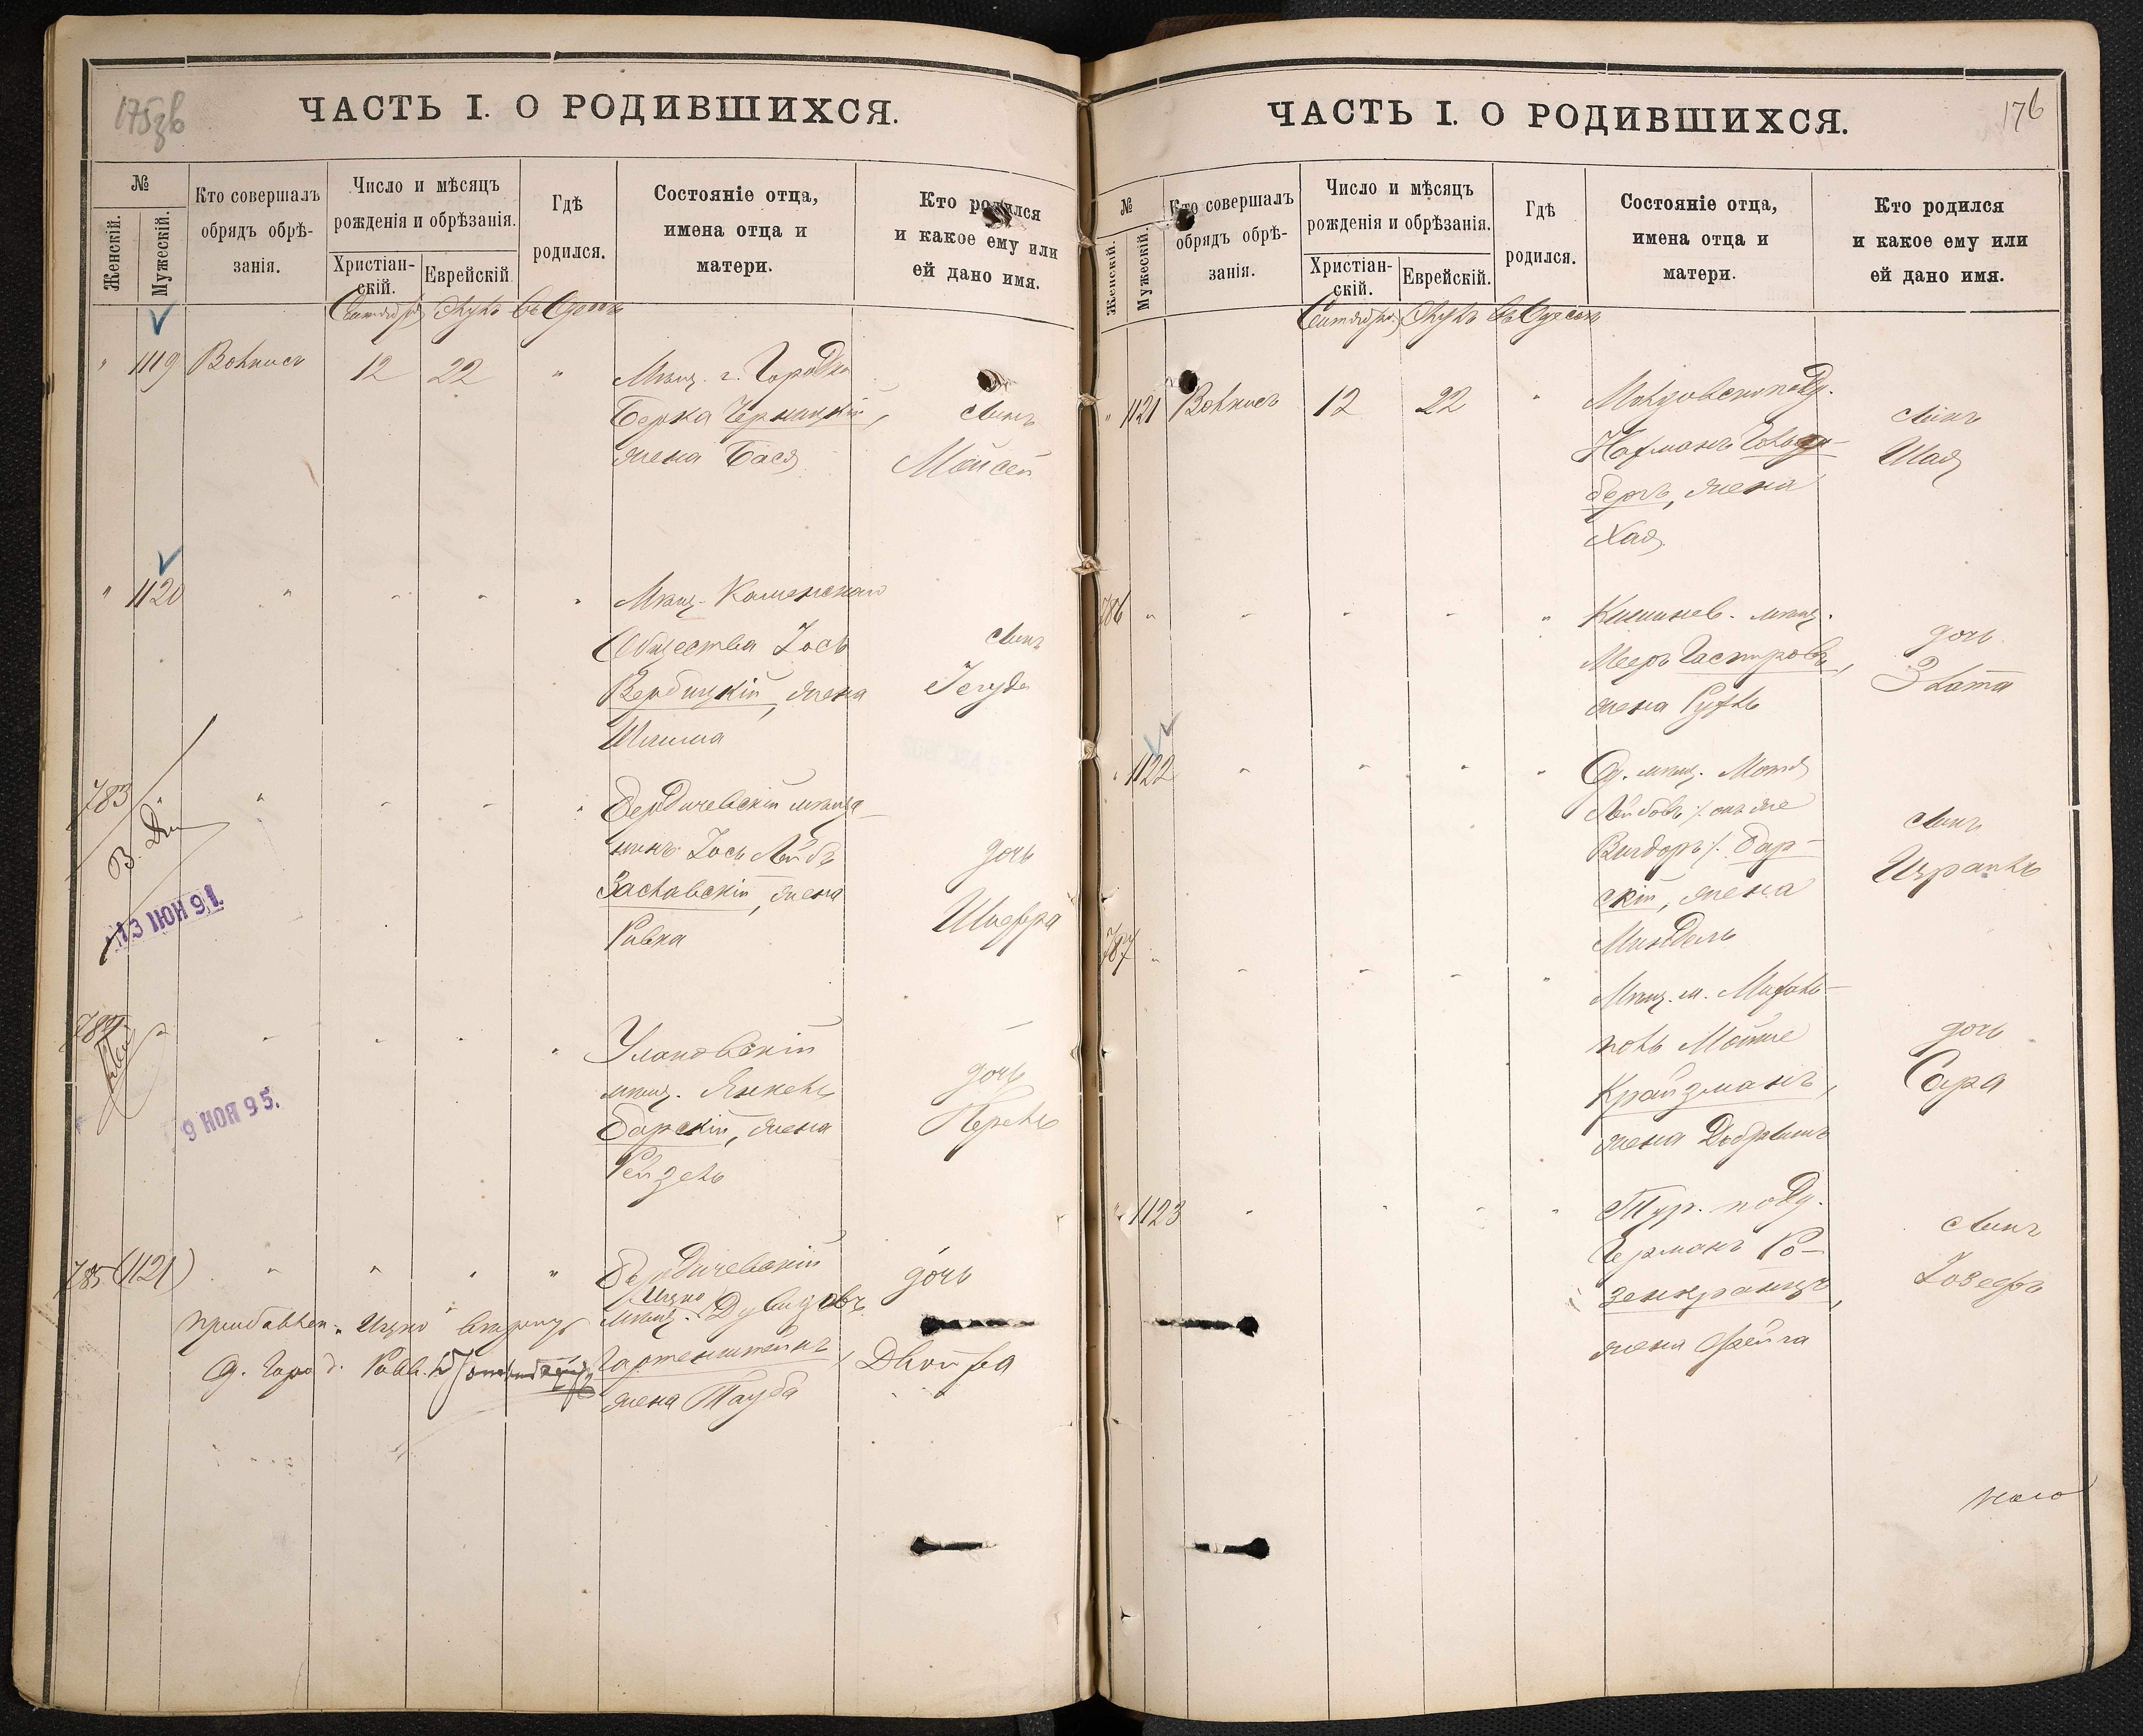 175зв
ЧАСТЬ I. О РОДИВШИХСЯ.
№
Женскій.
Мужескій.
Кто совершалъ
обрядъ обрѣ-
занія.
Число и мѣсяцъ
рожденія и обрѣзанія.
Христіан-
скій.
Еврейскій
Гдѣ
родился.
Состояніе отца,
имена отца и
матери.
Кто родился
и какое ему или
ей дано имя.
въ Одессѣ
" 1119 12 22 "
Мѣщ. г. Городка
Берка Черницкій,
жена Бася
сынъ
Моисей
" 1120 " " " "
Мѣщ. Каменскаго
Общества Іось
Вербицкій, жена
Шлима
сынъ
Іегуда
783 " " " " "
13 ІЮН 91.
Бердичевскій мѣща-
нинъ Іось Лейбъ
Заславскій, жена
Ривка
дочь
Шифра
784 " " " " "
9 НОЯ 95.
Улановскій
мѣщ. Янкель
Барскій, жена
Рейзель
дочь
Перель
785 (1121) " " " "
Бердичевскій
Ицко
мѣщ. Дувидовъ
Гартенштейнъ,
жена Тауба
дочь
Двойра
Прибавлен. "Ицко"
О. Город. Равв.
176
ЧАСТЬ I. О РОДИВШИХСЯ.
№
Женскій.
Мужескій.
Кто совершалъ
обрядъ обрѣ-
занія.
Число и мѣсяцъ
рожденія и обрѣзанія.
Христіан-
скій.
Еврейскій.
Гдѣ
родился.
Состояніе отца,
имена отца и
матери.
Кто родился
и какое ему или
ей дано имя.
въ Одессѣ
" 1121 12 22 "
Молдовскиподд.
Нахманъ Гольд-
бергъ, жена
Хая
сынъ
Шая
786 " " " " "
Кишинев. мѣщ.
Мееръ Гаспировъ,
жена Рухль
дочь
Злата
" 1122 " " " "
Од. мѣщ. Мотя
Лейбовъ /: онъ же
Вигдоръ :/ Бар-
скій, жена
Миндель
сынъ
Израиль
787 " " " " "
Мѣщ. м. Михаль-
поль Мойше
Крайзманъ,
жена Добрышъ
дочь
Сара
" 1123 " " " "
Тур. подд.
Германъ Ро-
зенкранцъ,
жена Фейга
сынъ
Іозефъ